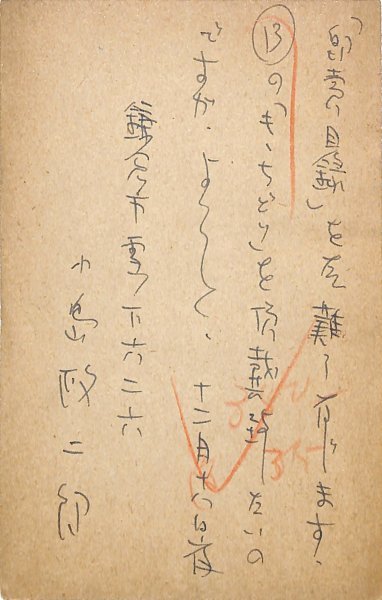 「即売目録」を有難う存じます。
⑬の「むらどり」を頂戴致したいの
ですが、よろしく、十二月十六日夜
鎌倉市雪ノ下六二六
小島政二郎